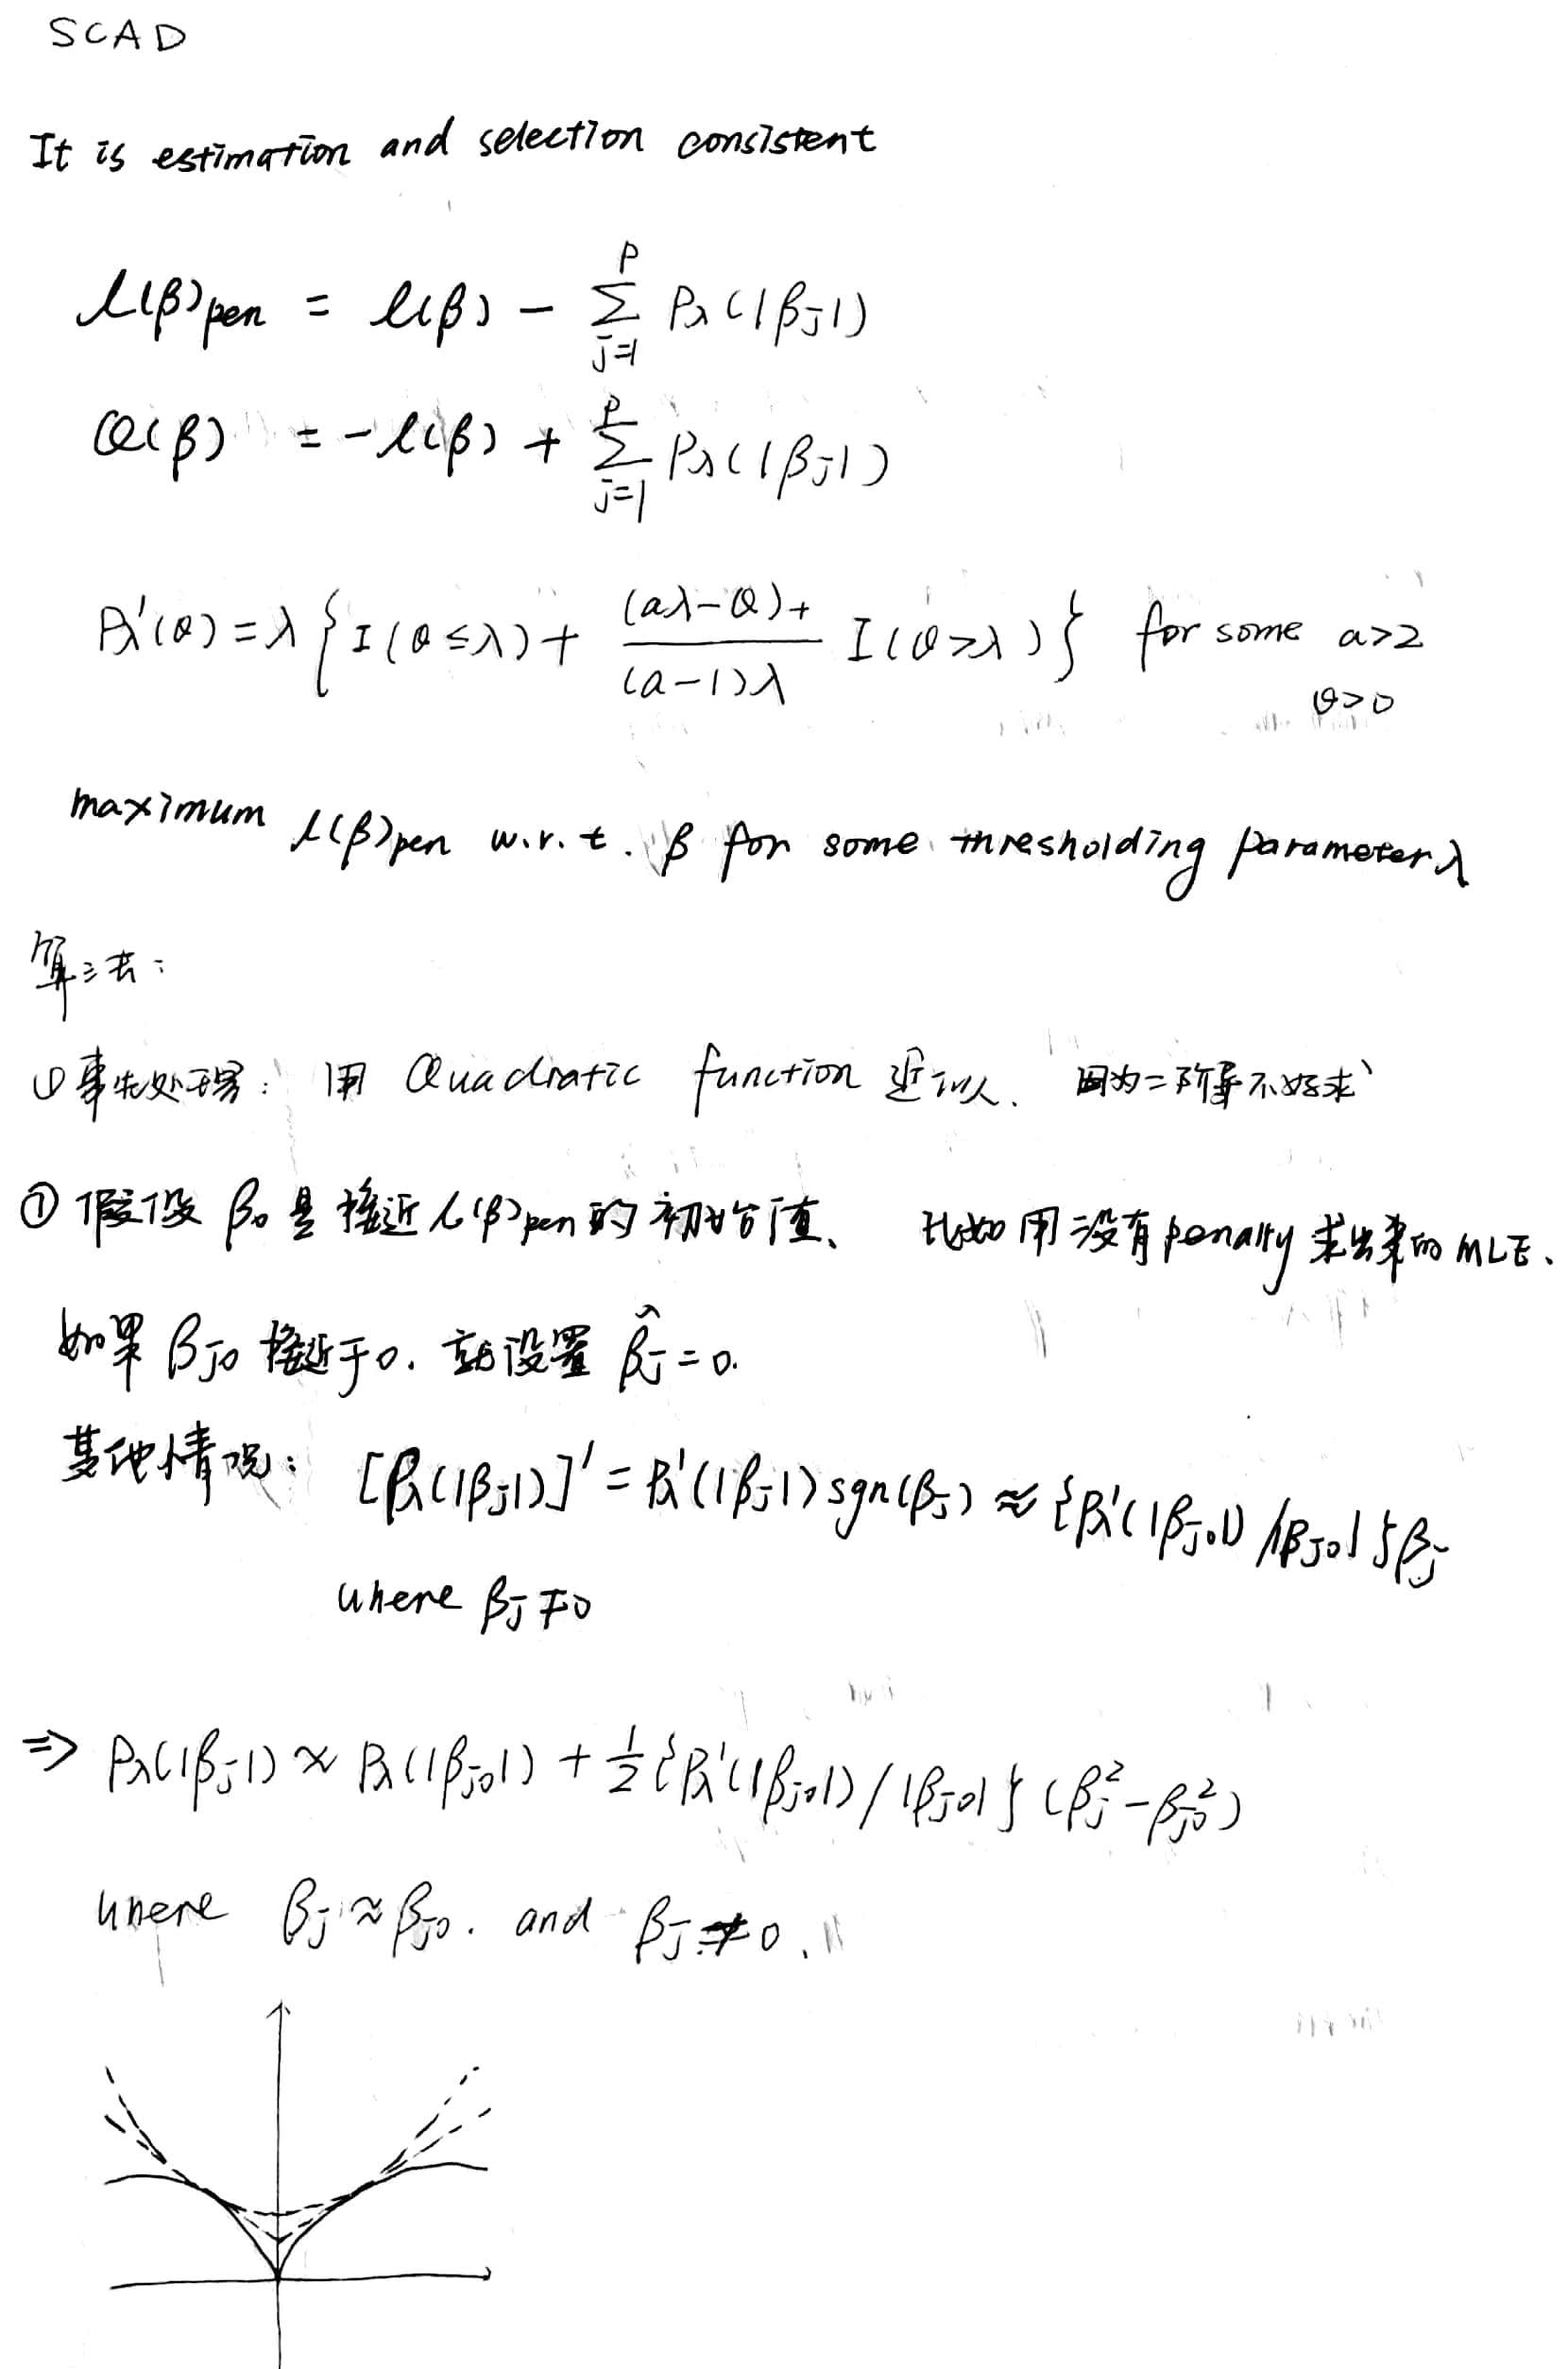 SCAD
It is estimation and selection consistent
l(β)pen = l(β) - Σ_{j=1}^{p} Pλ(|βj|)
Q(β) = -l(β) + Σ_{j=1}^{p} Pλ(|βj|)
Pλ'(θ) = λ{I(θ≤λ) + (aλ-θ)+ / (a-1)λ I(θ>λ)} for some a>2
θ>0
maximum l(β)pen w.r.t. β for some thresholding parameter λ
算法:
① 事先处理: 用 Quadratic function 近似. 因为二阶导不好求
① 假设 β0 是接近 l(β)pen 的初始值、 比如用没有 penalty 求出来的 MLE.
如果 βj0 接近于0. 就设置 β̂j = 0.
其他情况: [Pλ(|βj|)]' = Pλ'(|βj|) sgn(βj) ≈ {Pλ'(|βj0|)/|βj0|}βj
where βj ≠ 0
⇒ Pλ(|βj|) ≈ Pλ(|βj0|) + 1/2 {Pλ'(|βj0|)/|βj0|} (βj² - βj0²)
where βj ≈ βj0. and βj ≠ 0.